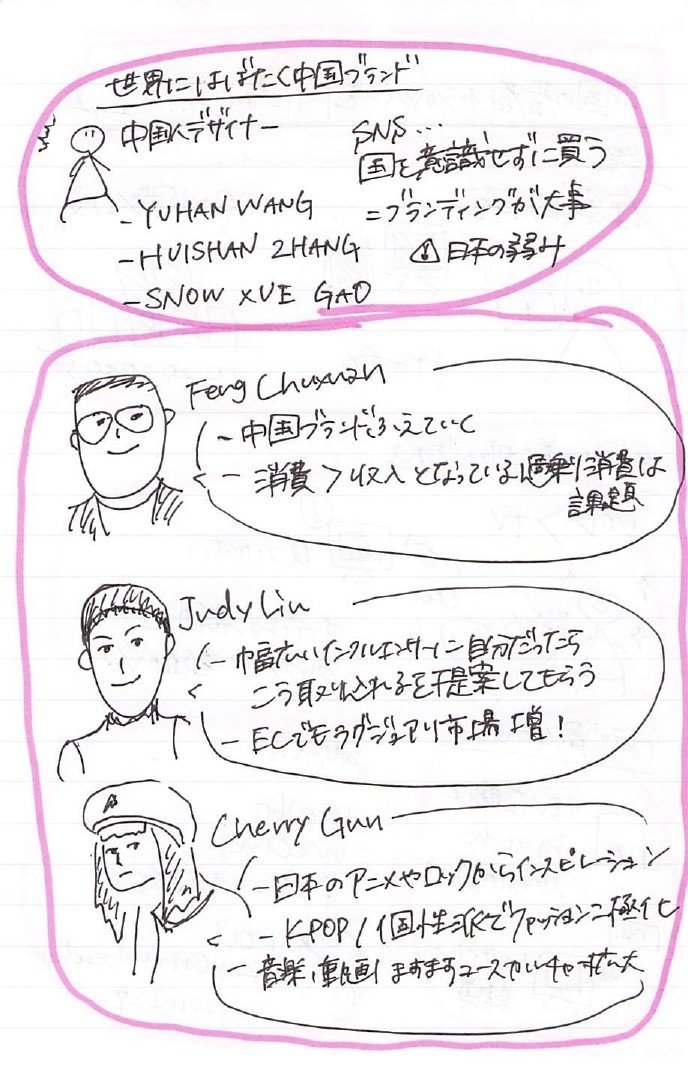 世界にはばたく中国ブランド
中国人デザイナー
- YUHAN WANG
- HUISHAN ZHANG
- SNOW XUE GAO
SNS...
国を意識せずに買う
=ブランディングが大事
日本の弱み
Feng Chuxuan
- 中国ブランドふえていく
- 消費 > 収入となっている 消費は
課題
Judy Liu
- 幅広いインフルエンサーに自分だったら
こう取り入れるを提案してもらう
- ECでもラグジュアリ市場増!
Cherry Gun
- 日本のアニメやロックからインスピレーション
- KPOP / 個性派でファッション二極化
- 音楽、動画 ますますユースカルチャー拡大